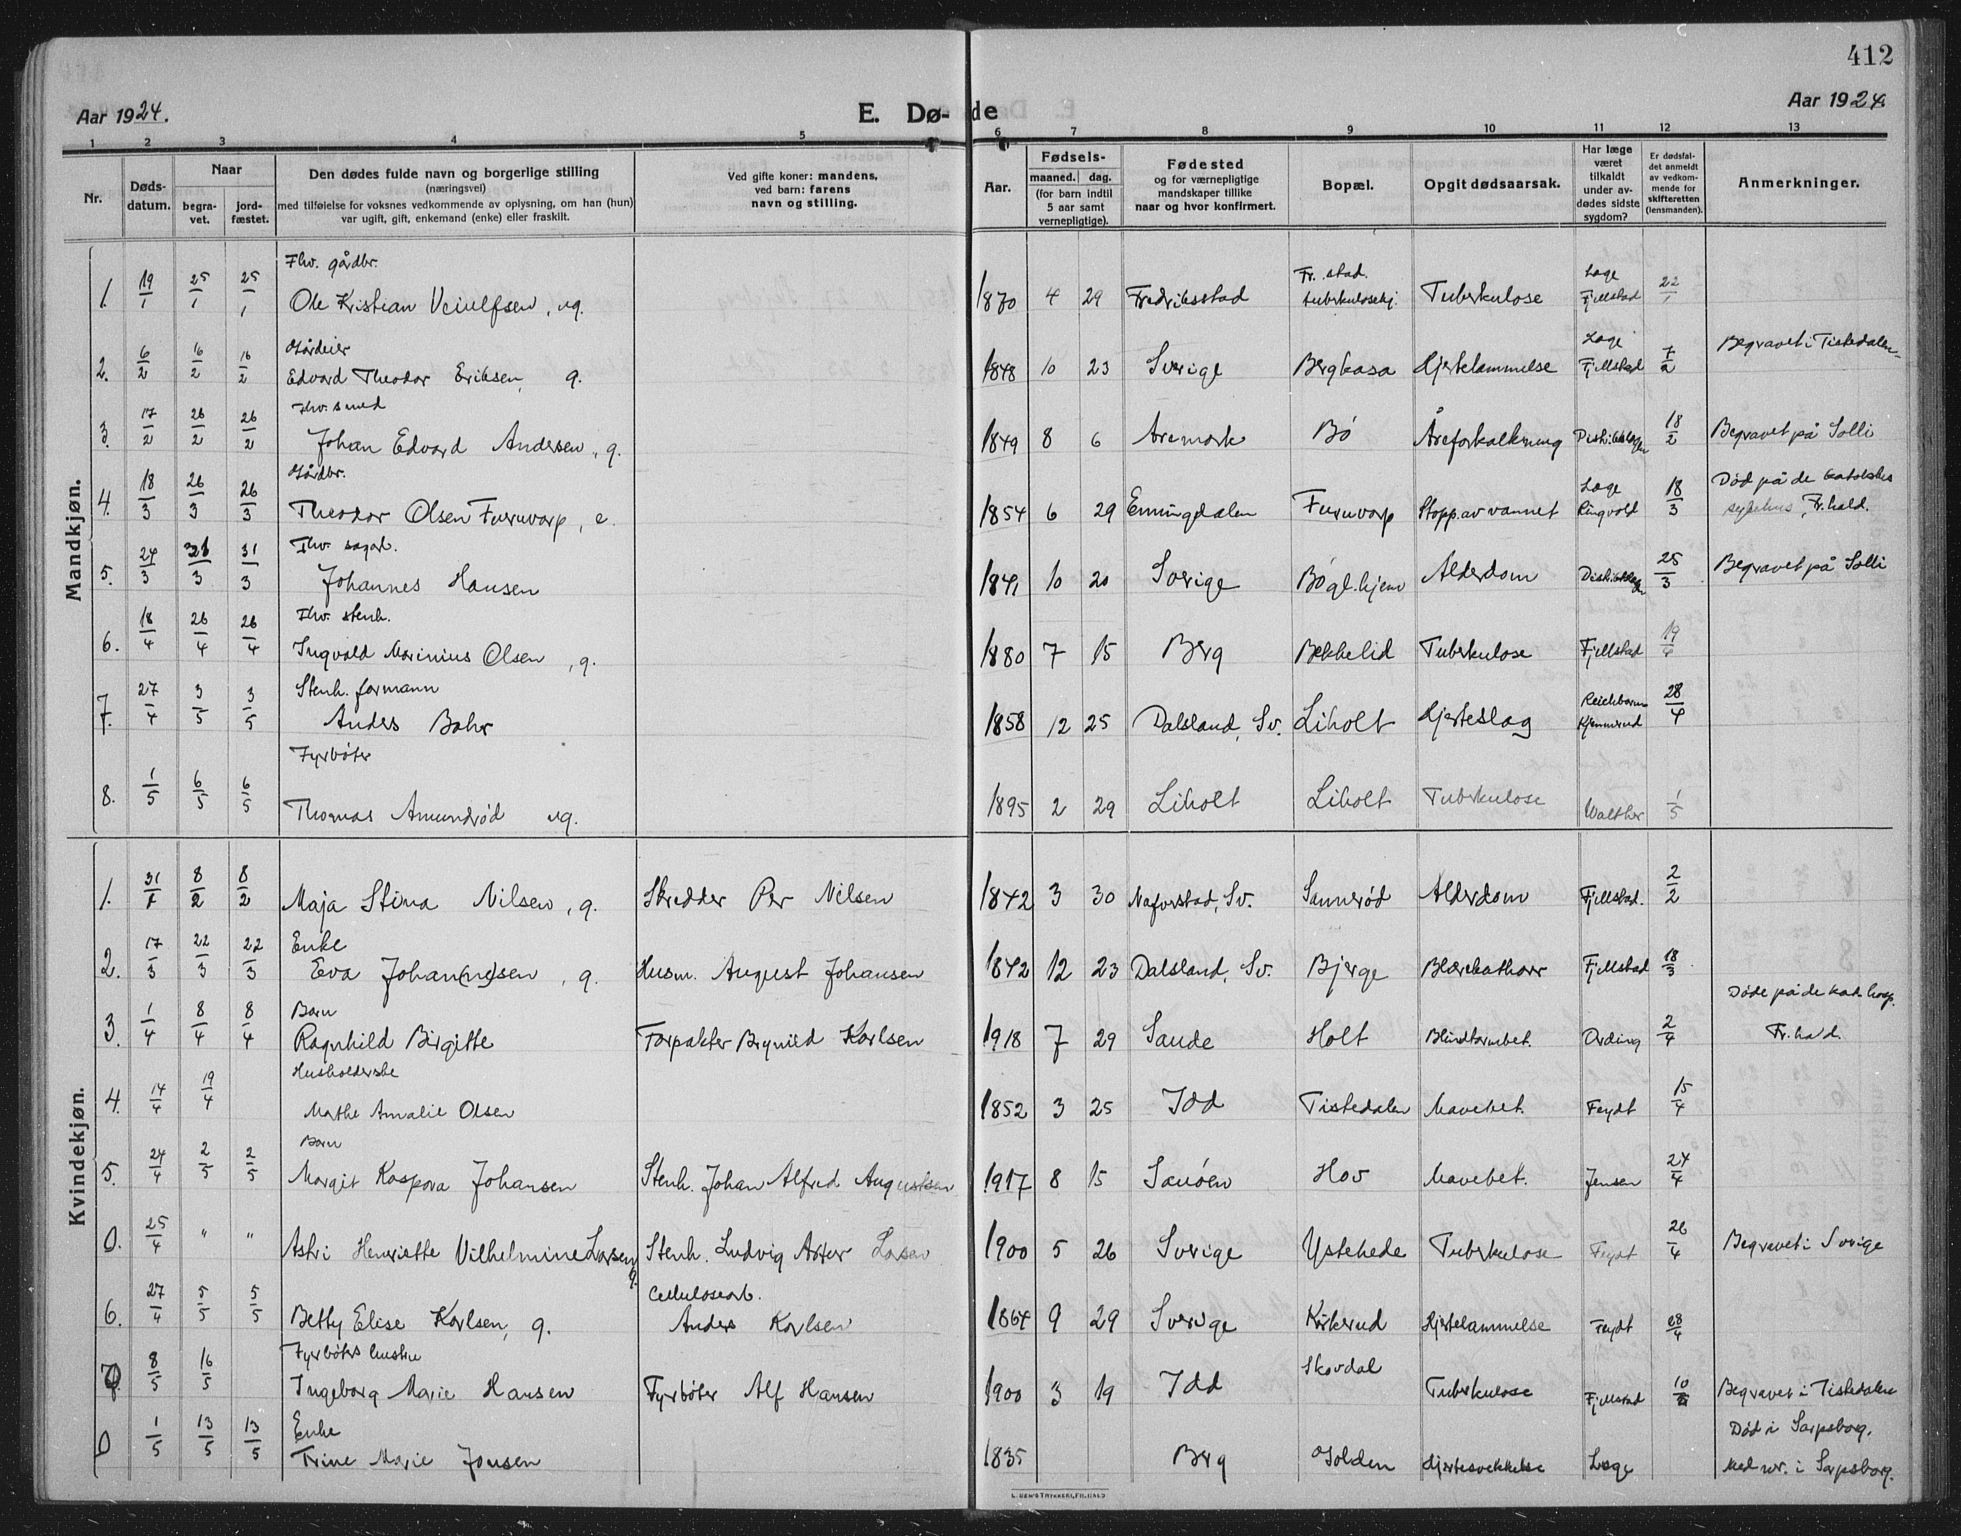 412
Aar 1924.
E. Dø-
de
Aar 1924.
1 2 3 4 5 6 7 8 9 10 11 12 13
Nr.
Døds-
datum.
Naar
begra-
vet.
jord-
fæstet.
Den dødes fulde navn og borgerlige stilling
(næringsvei)
med tilføielse for voksnes vedkommende av oplysning, om han (hun)
var ugift, gift, enkemand (enke) eller fraskilt.
Ved gifte koner: mandens,
ved barn: farens
navn og stilling.
Aar.
Fødsels-
maaned. dag.
(for barn indtil
5 aar samt
vernepligtige).
Fødested
og for værnepligtige
mandskaper tillike
naar og hvor konfirmert.
Bopæl.
Opgit dødsaarsak.
Har læge
været
tilkaldt
under av-
dødes sidste
sygdom?
Er dødsfal-
det anmeldt
av vedkom-
mende for
skifteretten
(lensmanden).
Anmerkninger.
Mandkjøn.
Fhv. gårdbr.
1. 19/1 25/1 25/1 Ole Kristian Veiulfsen, ug. 1870 4 29 Fredriksstad Fr.stad. tuberkulosehj. Tuberkulose Læge Fjellstad 22/1
Gårdeier
2. 6/2 16/2 16/2 Edvard Theodor Eriksen, g. 1848 10 23 Sverige Bergkasa Hjertelammelse Læge Fjellstad 7/2 Begravet i Tistedalen
Fhv. smed
3. 17/2 26/2 26/2 Johan Edvard Andersen, g. 1849 8 6 Aremark Bø Åreforkalkning 18/2 Begravet på Solli
Gårdbr.
4. 18/3 26/3 26/3 Theodor Olsen Furuvarp, e. 1854 6 29 Enningdalen Furuvarp Stopp. av vannet Læge Ringvold 18/3 Død på de katolske sykehus, Fr.hald.
Fhv. sagarb.
5. 24/3 31/3 31/3 Johannes Hansen 10 20 Sverige Bø gl.hjem Alderdom 25/3 Begravet på Solli
Fhv. stenh.
6. 18/4 26/4 26/4 Ingvald Marinius Olsen, g. 1880 7 15 Berg Bekkelid Tuberkulose Fjellstad 19/4
Stenh. formann
7. 27/4 3/5 3/5 Anders Bohr 1858 12 25 Dalsland, Sv. Liholt Hjerteslag Reichborn Kjennerud 28/4
Fyrbøter
8. 1/5 6/5 6/5 Thomas Amundrød ug. 1895 2 29 Liholt Liholt Tuberkulose Walther 1/5
Kvindekjøn.
1. 31/1 8/2 8/2 Maja Stina Nilsen, g. Skredder Per Nilsen 1842 3 30 Naverstad, Sv. Sannerød Alderdom Fjellstad. 2/2
Enke
2. 17/3 22/3 22/3 Eva Johan(ne)sen, g. Husm. August Johansen 1842 12 23 Dalsland, Sv. Bjerge Blærekatharr Fjellstad 18/3
Barn
3. 1/4 8/4 8/4 Ragnhild Birgitte Forpakter Brynild Karlsen 1918 7 29 Sande Holt Blindtarmbet. Ording 2/4 Døde på de kat. hosp. Fr.hald.
Husholderske
4. 14/4 19/4 Mathe Amalie Olsen 1852 3 25 Idd Tistedalen Mavebet. Feydt 15/4
Barn
5. 24/4 2/5 2/5 Margit Kaspara Johansen Stenh. Johan Alfred Augustsen 1917 8 15 Sauøen Hov Mavebet. Jensen 24/4
0. 25/4 " " Astri Henriette Vilhelmine Larsen g. Stenh. Ludvig Artur Larsen 1900 5 26 Sverige Ystehede Tuberkulose Feydt 26/4 Begravet i Sverige
6. 27/4 5/5 5/5 Betty Elise Karlsen, g. Cellulosearb. Anders Karlsen 1864 9 29 Sverige Kirkerud Hjertelammelse Feydt 28/4
Fyrbøters hustru
7. 8/5 16/5 Ingeborg Marie Hansen Fyrbøter Alf Hansen 1900 3 19 Idd Skovdal Tuberkulose Fjellstad Begravet i Tistedalen
Enke
0 1/5 13/5 13/5 Trine Marie Jonsen 1835 Berg Holden Hjertesvekkelse Læge Død i Sarpsborg. Med nr. i Sarpsborg.